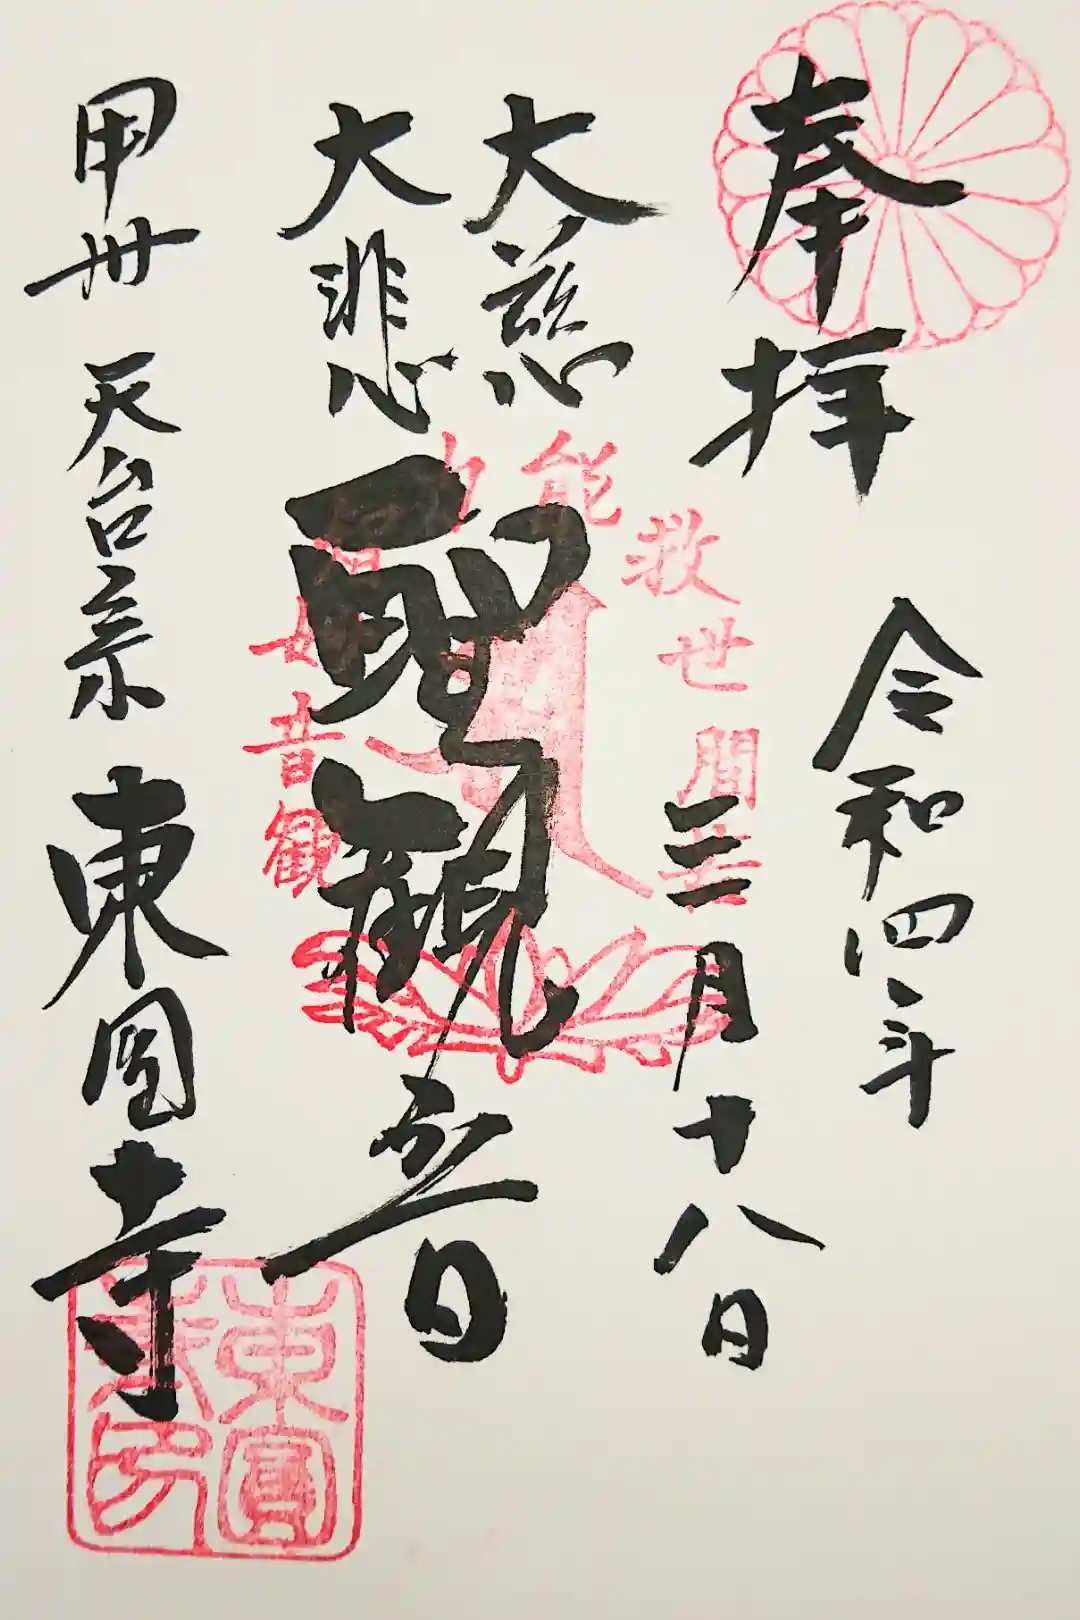 奉拝
令和四年
三月十八日
大慈
大悲
聖観世音
甲州 天台宗 東圓寺
観音妙智力能救世間苦